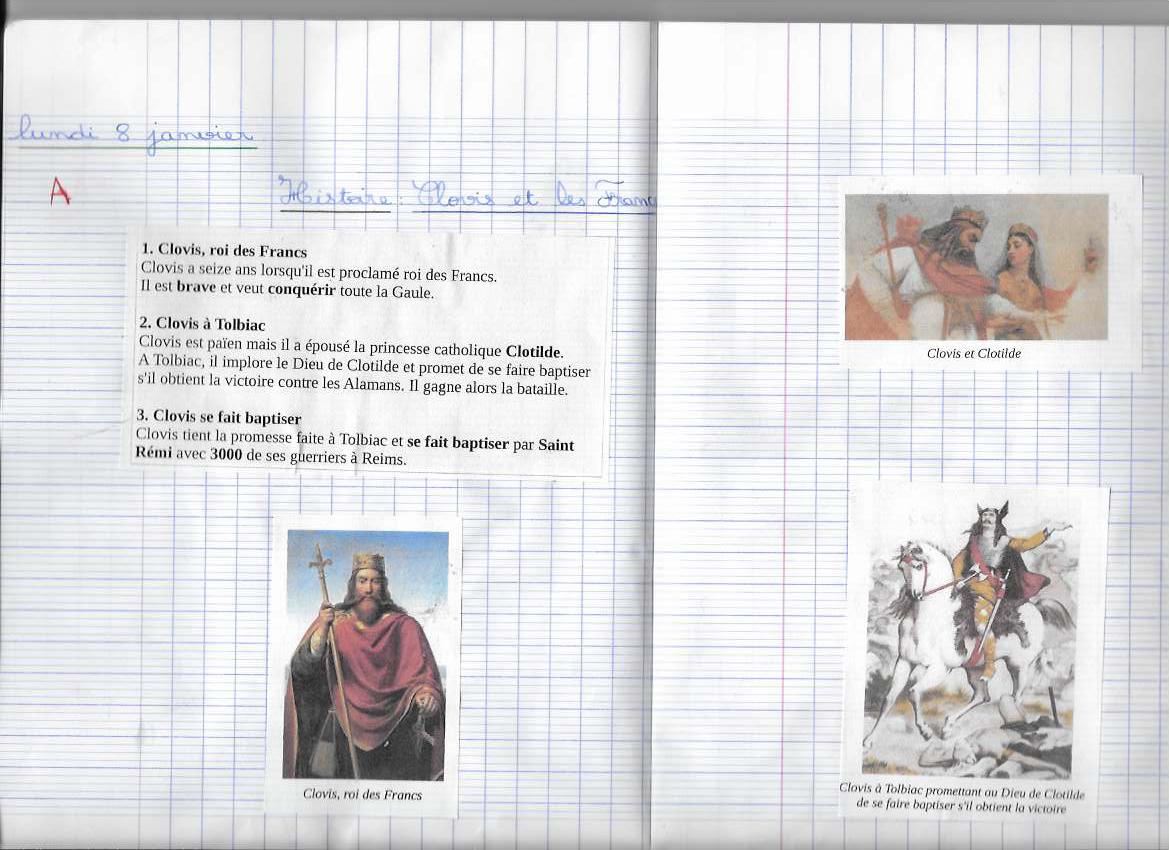 lundi 8 janvier
A
Histoire : Clovis et les Franc
1. Clovis, roi des Francs
Clovis a seize ans lorsqu'il est proclamé roi des Francs.
Il est brave et veut conquérir toute la Gaule.
2. Clovis à Tolbiac
Clovis est païen mais il a épousé la princesse catholique Clotilde.
A Tolbiac, il implore le Dieu de Clotilde et promet de se faire baptiser
s'il obtient la victoire contre les Alamans. Il gagne alors la bataille.
3. Clovis se fait baptiser
Clovis tient la promesse faite à Tolbiac et se fait baptiser par Saint
Rémi avec 3000 de ses guerriers à Reims.
Clovis, roi des Francs
Clovis et Clotilde
Clovis à Tolbiac promettant au Dieu de Clotilde
de se faire baptiser s'il obtient la victoire